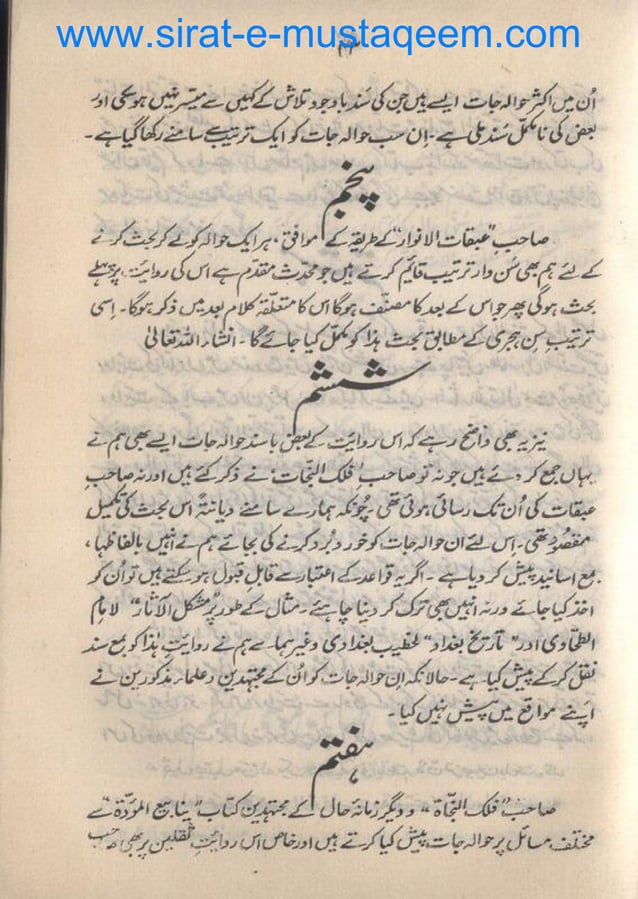 www.sirat-e-mustaqeem.com
۴۳
اُن میں اکثر حوالہ جات ایسے ہیں جن کی سَند باوجود تلاش کے کہیں سے میّسر نہیں ہوسکی اور
بعض کی نامکمل سَند ملی ہے۔ اِن سب حوالہ جات کو ایک ترتیب سے سامنے رکھا گیا ہے۔
پنجم
صاحبِ "عبقات الانوار" کے طریقہ کے موافق، ہر ایک حوالہ کو لے کر بحث کرنے
کے لئے ہم بھی سَن وار ترتیب قائم کرتے ہیں جو محدّث مقدّم ہے اس کی روائت پر پہلے
بحث ہوگی پھر جو اس کے بعد کا مصنّف ہوگا اس کا متعلّقہ کلام بعد میں ذکر ہوگا۔ اِسی
ترتیبِ سِن ہجری کے مطابق بحث ہذا کو مکمّل کیا جائے گا۔ انشاء اللہ تعالیٰ
ششم
نیز یہ بھی واضح رہے کہ اس روائت کے بعض باسند حوالہ جات ایسے بھی ہم نے
یہاں جمع کر دئے ہیں جو نہ تو صاحبِ "فلک النجات" نے ذکر کئے ہیں اور نہ صاحبِ
عبقات کی اُن تک رسائی ہوئی تھی۔ چونکہ ہمارے سامنے دیانتہً اس بحث کی تکمیل
مقصُود تھی۔ اِس لئے ان حوالہ جات کو خورد بُرد کرنے کی بجائے ہم نے اُنہیں بالفاظہا،
بمع اسانید پیش کر دیا ہے۔ اگر یہ قواعد کے اعتبار سے قابل قبول ہو سکتے ہیں تو اُن کو
اخذ کیا جائے ورنہ انہیں بھی ترک کر دینا چاہئے۔ مثال کے طور پر "مشکل الآثار" لامام
الطحّاوی اور "تاریخ بغداد" لخطیب بغدادی وغیرہما سے ہم نے روائت ہٰذا کو بمع سند
نقل کر کے پیش کیا ہے۔ حالانکہ اِن حوالہ جات کو اُن کے مجتہدین و علماء مذکورین نے
اپنے مواقع میں پیش نہیں کیا۔
ہفتم
صاحب "فلک النجاۃ" و دیگر زمانہ حال کے مجتہدین کتاب "ینابیع المودّۃ" سے
مختلف مسائل پر حوالہ جات پیش کیا کرتے ہیں اور خاص اس روائتِ ثقلین پر بھی صاحب